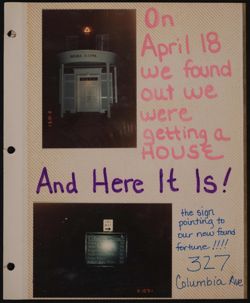 On
April 18
we found
out we
were
getting a
HOUSE
And Here It Is!
the sign
pointing to
our new found
fortune!!!!
327
Columbia Ave